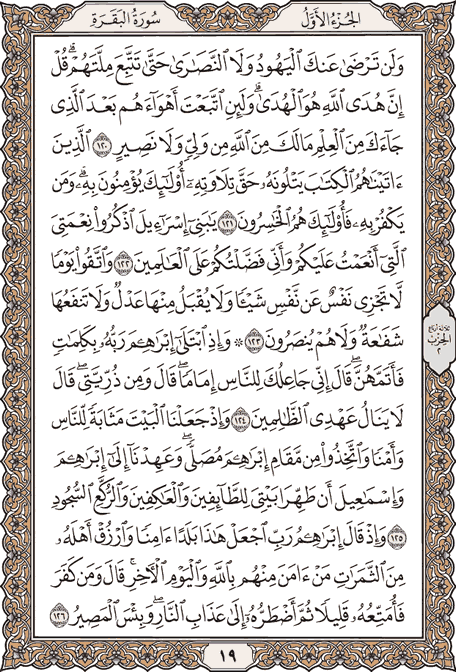 الجُزْءُ الأَوَّلُ
سُورَةُ البَقَرَةِ
وَلَن تَرْضَىٰ عَنكَ ٱلْيَهُودُ وَلَا ٱلنَّصَـٰرَىٰ حَتَّىٰ تَتَّبِعَ مِلَّتَهُمْ ۗ قُلْ
إِنَّ هُدَى ٱللَّهِ هُوَ ٱلْهُدَىٰ ۗ وَلَئِنِ ٱتَّبَعْتَ أَهْوَآءَهُم بَعْدَ ٱلَّذِى
جَآءَكَ مِنَ ٱلْعِلْمِ مَا لَكَ مِنَ ٱللَّهِ مِن وَلِىٍّ وَلَا نَصِيرٍ ١٢٠ ٱلَّذِينَ
ءَاتَيْنَـٰهُمُ ٱلْكِتَـٰبَ يَتْلُونَهُۥ حَقَّ تِلَاوَتِهِۦٓ أُو۟لَـٰٓئِكَ يُؤْمِنُونَ بِهِۦ ۗ وَمَن
يَكْفُرْ بِهِۦ فَأُو۟لَـٰٓئِكَ هُمُ ٱلْخَـٰسِرُونَ ١٢١ يَـٰبَنِىٓ إِسْرَٰٓءِيلَ ٱذْكُرُوا۟ نِعْمَتِىَ
ٱلَّتِىٓ أَنْعَمْتُ عَلَيْكُمْ وَأَنِّى فَضَّلْتُكُمْ عَلَى ٱلْعَـٰلَمِينَ ١٢٢ وَٱتَّقُوا۟ يَوْمًا
لَّا تَجْزِى نَفْسٌ عَن نَّفْسٍ شَيْـًٔا وَلَا يُقْبَلُ مِنْهَا عَدْلٌ وَلَا تَنفَعُهَا
شَفَـٰعَةٌ وَلَا هُمْ يُنصَرُونَ ١٢٣ ۞ وَإِذِ ٱبْتَلَىٰٓ إِبْرَٰهِـۧمَ رَبُّهُۥ بِكَلِمَـٰتٍ
فَأَتَمَّهُنَّ ۖ قَالَ إِنِّى جَاعِلُكَ لِلنَّاسِ إِمَامًا ۖ قَالَ وَمِن ذُرِّيَّتِى ۖ قَالَ
لَا يَنَالُ عَهْدِى ٱلظَّـٰلِمِينَ ١٢٤ وَإِذْ جَعَلْنَا ٱلْبَيْتَ مَثَابَةً لِّلنَّاسِ
وَأَمْنًا وَٱتَّخِذُوا۟ مِن مَّقَامِ إِبْرَٰهِـۧمَ مُصَلًّى ۖ وَعَهِدْنَآ إِلَىٰٓ إِبْرَٰهِـۧمَ
وَإِسْمَـٰعِيلَ أَن طَهِّرَا بَيْتِىَ لِلطَّآئِفِينَ وَٱلْعَـٰكِفِينَ وَٱلرُّكَّعِ ٱلسُّجُودِ
١٢٥ وَإِذْ قَالَ إِبْرَٰهِـۧمُ رَبِّ ٱجْعَلْ هَـٰذَا بَلَدًا ءَامِنًا وَٱرْزُقْ أَهْلَهُۥ
مِنَ ٱلثَّمَرَٰتِ مَنْ ءَامَنَ مِنْهُم بِٱللَّهِ وَٱلْيَوْمِ ٱلْـَٔاخِرِ ۖ قَالَ وَمَن كَفَرَ
فَأُمَتِّعُهُۥ قَلِيلًا ثُمَّ أَضْطَرُّهُۥٓ إِلَىٰ عَذَابِ ٱلنَّارِ ۖ وَبِئْسَ ٱلْمَصِيرُ ١٢٦
الحزب
٢
١٩